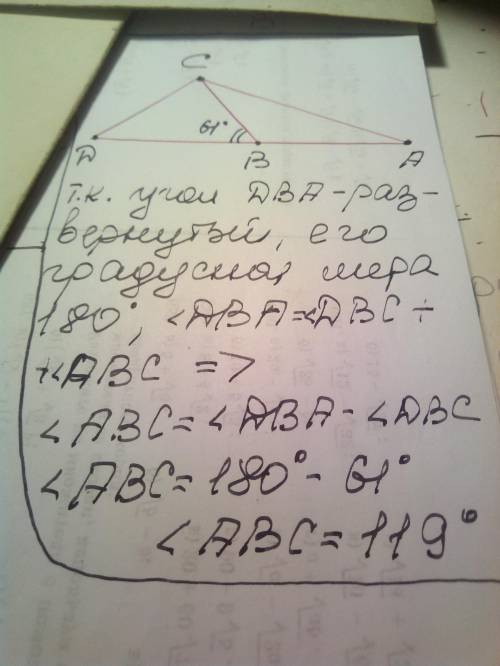 C
61°
D B A
Т.к. угол DBA-раз-
вернутый, его
градусная мера
180°, <DBA=<DBC+
+<ABC =>
<ABC=<DBA-<DBC
<ABC=180°-61°
<ABC=119°